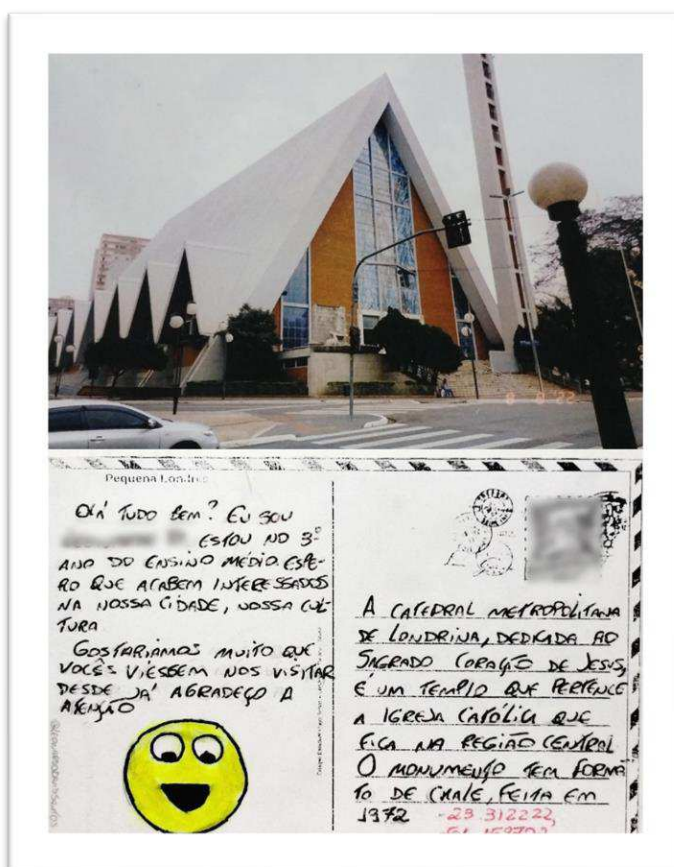 8 8 22
Pequena Londres
OLÁ TUDO BEM? EU SOU
ESTOU NO 3º
ANO DO ENSINO MÉDIO. ESPE-
RO QUE ACABEM INTERESSADOS
NA NOSSA CIDADE, NOSSA CUL-
TURA
GOSTARIAMOS MUITO QUE
VOCÊS VIESSEM NOS VISITAR
DESDE JÁ AGRADEÇO A
ATENÇÃO
A CATEDRAL METROPOLITANA
DE LONDRINA, DEDICADA AO
SAGRADO CORAÇÃO DE JESUS,
É UM TEMPLO QUE PERTENCE
A IGREJA CATÓLICA QUE
FICA NA REGIÃO CENTRAL
O MONUMENTO TEM FORMA
TO DE CHALE, FEITA EM
1972 -23.312222,